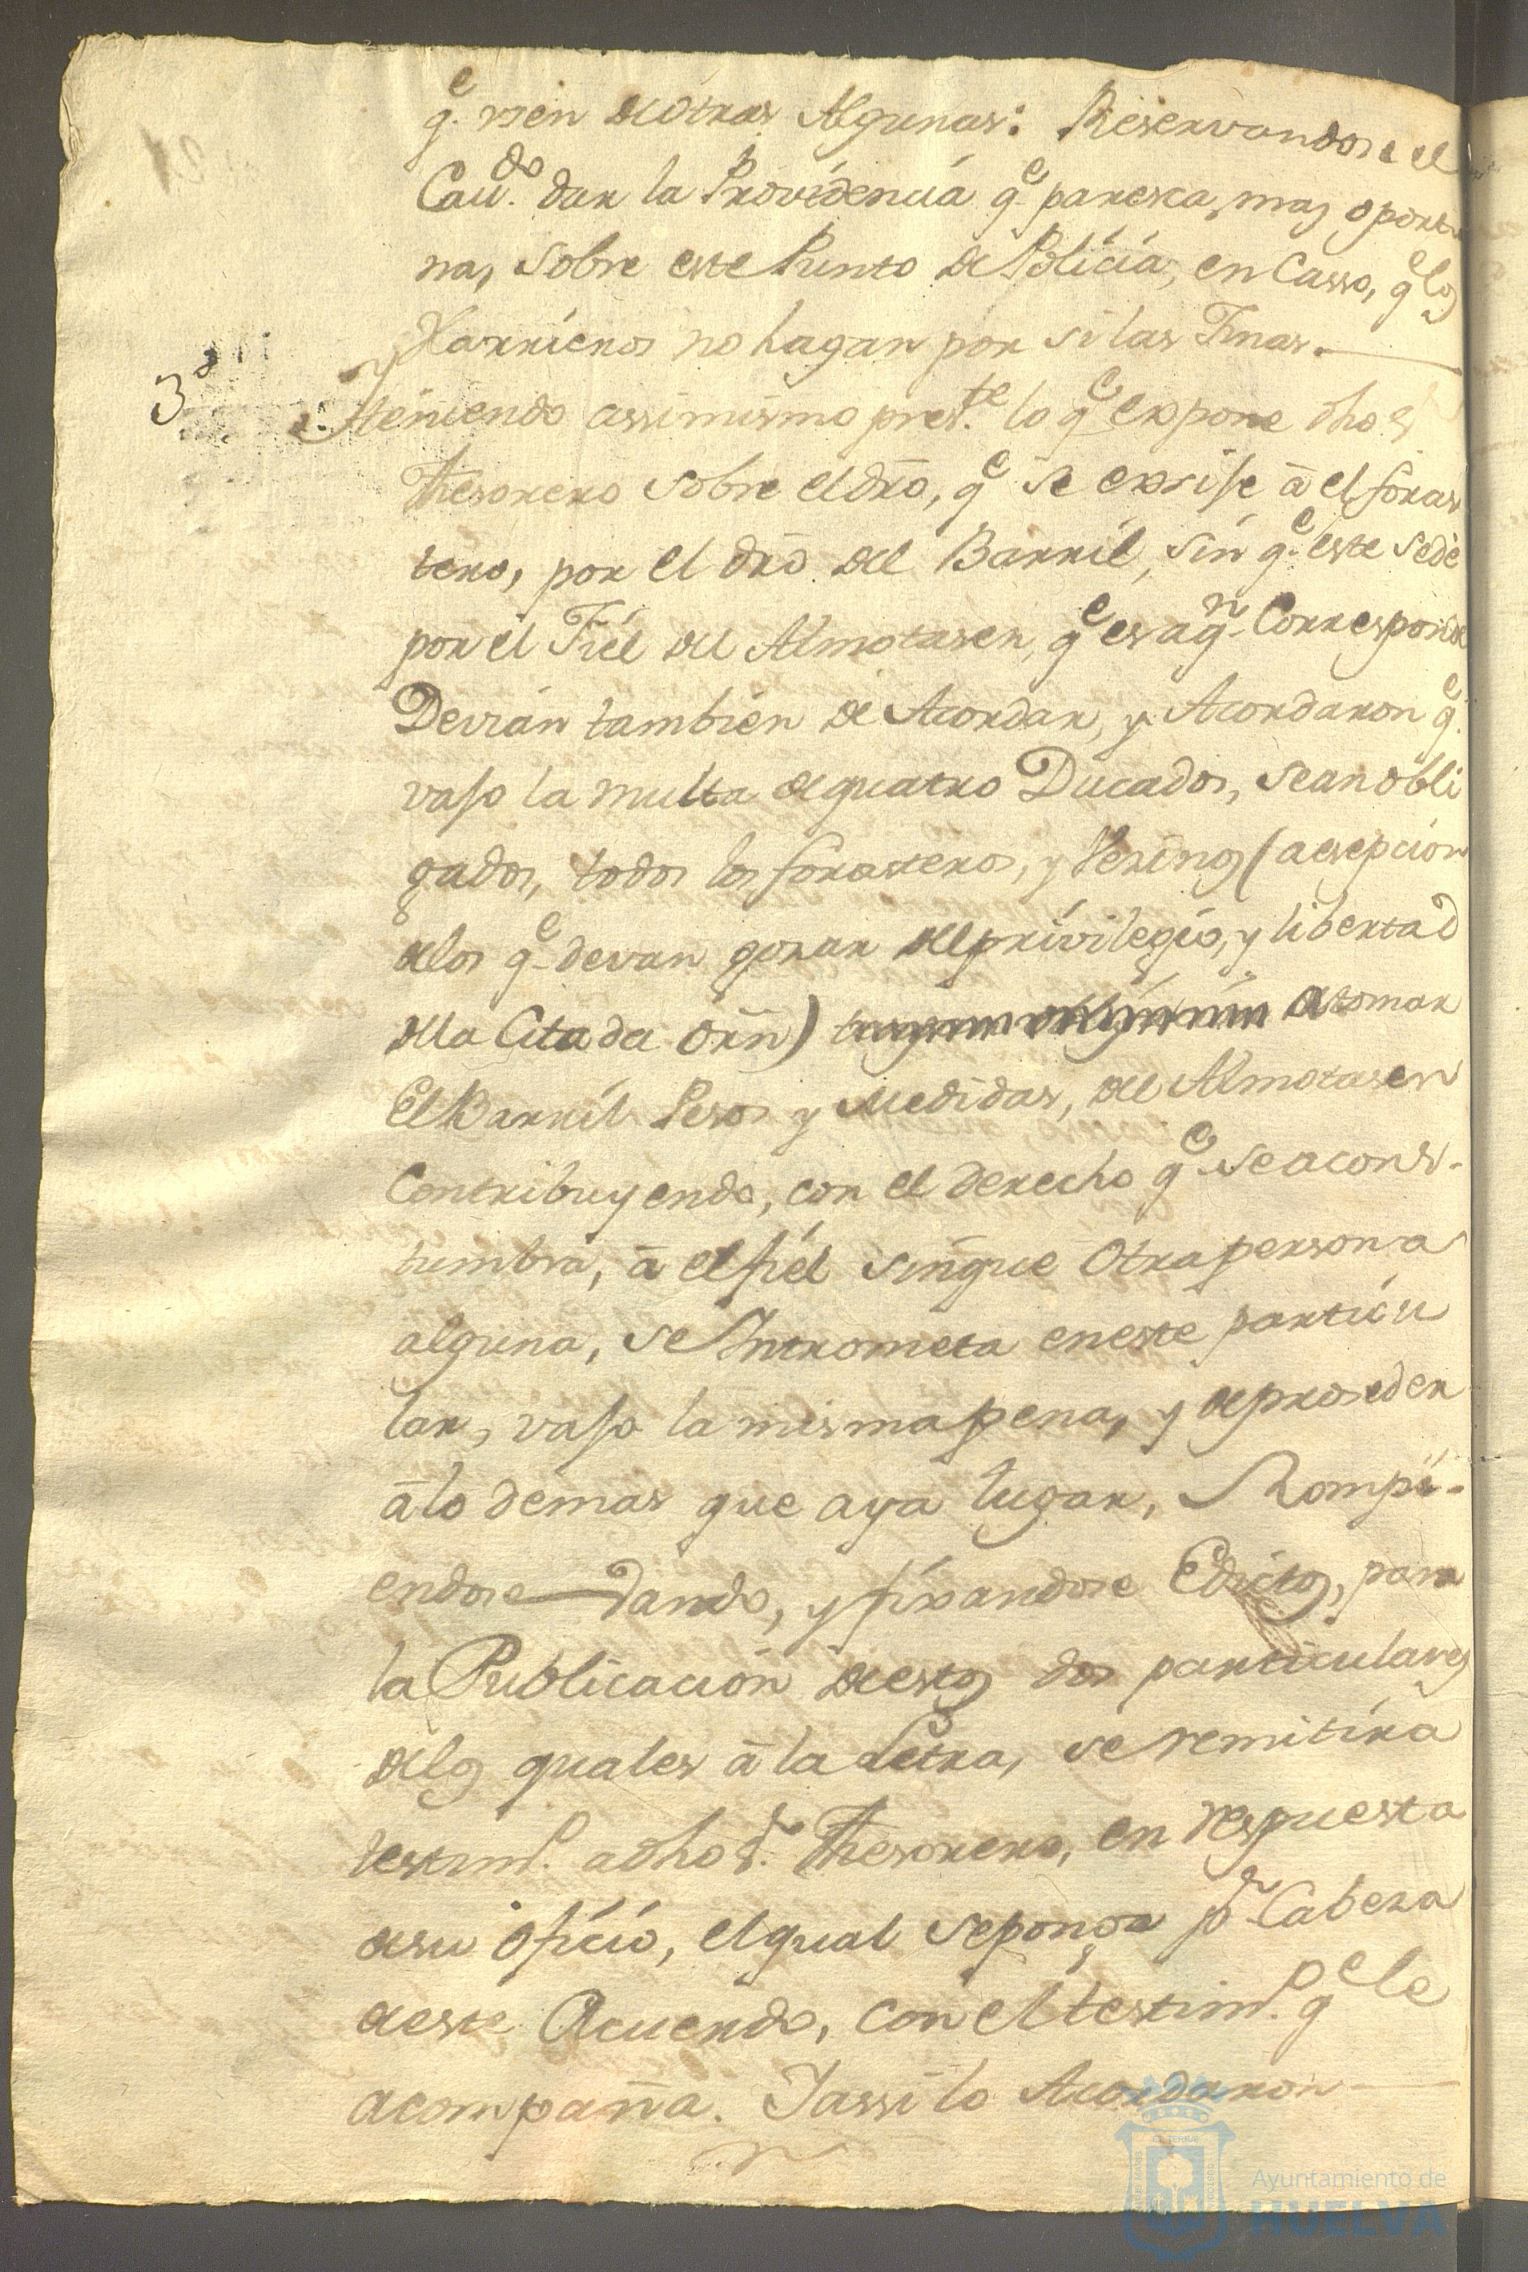 q.e usen de otras Algunas: Reservandose el
Cav.do dar la Providencia q.e paresca, mas oportu
na, sobre este Punto de Policia, en Casso, q.e los
Harrieros no hagan por si las Tinas.
3º
Y teniendo assimismo pres.te lo q.e expone dho S.r
Thesorero sobre el dro, q.e se exsije â el foras
tero, por el dro del Barril, sin q.e este se dè
por el Fiel del Almotasen, q.e es a q.n Corresponde
Devian tambien de Acordar, y Acordaron q.e
vajo la multa de quatro Ducados, sean obli
gados, todos los forasteros, y Vezinos (a esepcion
de los q.e devan gozar del privilegio, y libertad
de la Citada Orn) a tomar
El Barril Pesos y Medidas, del Almotasen
Contribuyendo, con el derecho q.e se acons-
tumbra, â el fiel sin que Otra persona
alguna, se Intrometa en este particu
lar, vajo la misma pena, y de proseder
â lo demas que aya lugar, Rompi-
endose Vando, y fixandose Edictos, para
la Publicacion de estos dos particulares
de los quales â la Letra, se remitirà
testim.o a dho S.r Thesorero, en respuesta
de su oficio, el qual se ponga p.r Cabeza
de este Acuerdo, con el testim.o q.e le
acompaña. Y assi lo Acordaron
Ayuntamiento de
HUELVA